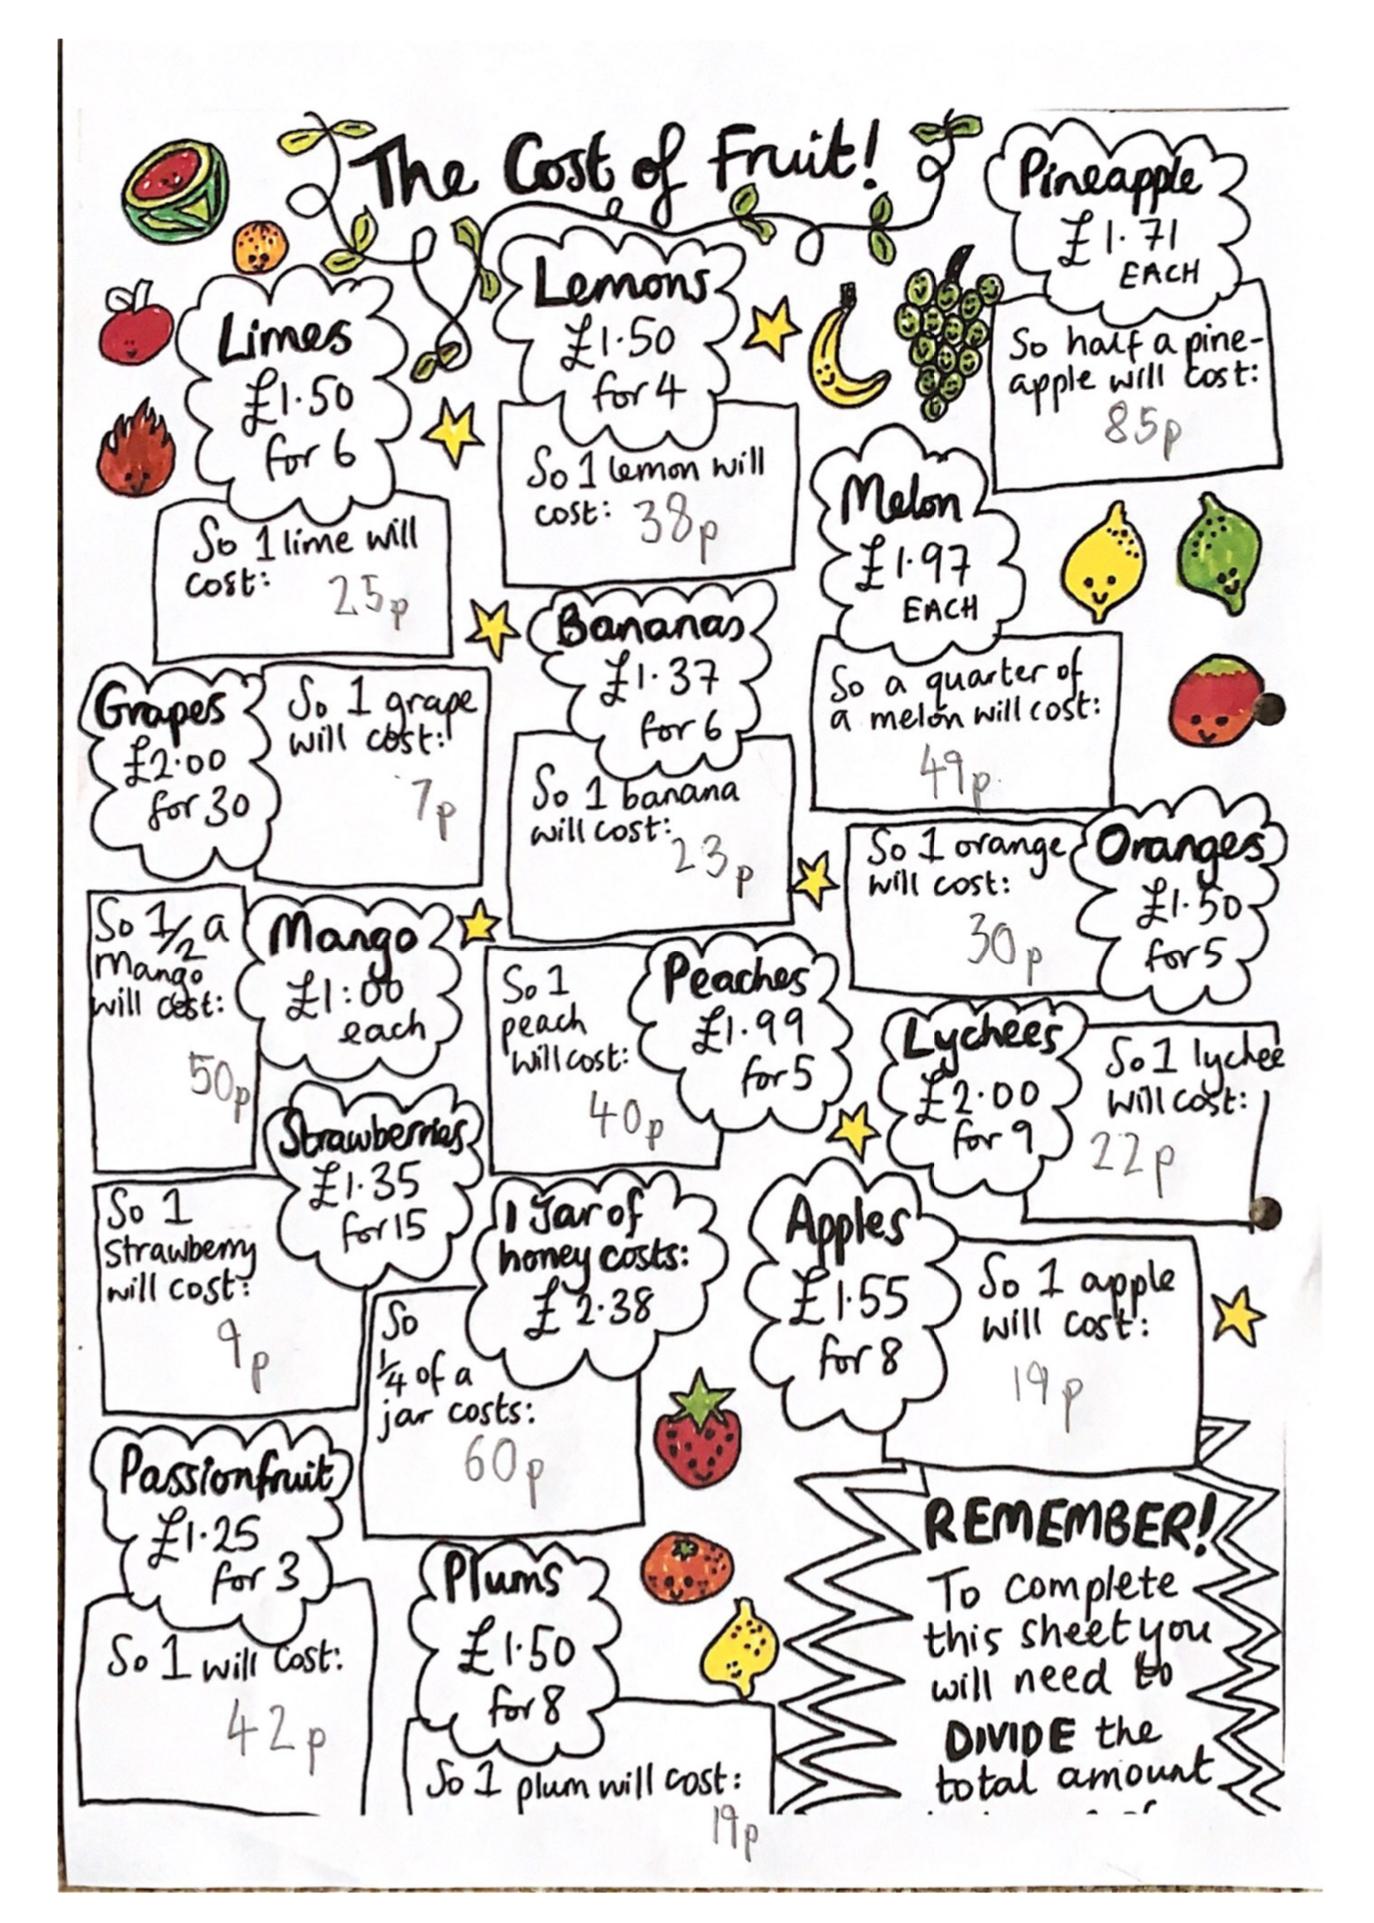 The Cost of Fruit!
Pineapple
£1.71
EACH
So half a pine-
apple will cost:
85p
Lemons
£1.50
for 4
So 1 lemon will
cost: 38p
Limes
£1.50
for 6
So 1 lime will
cost: 25p
Melon
£1.97
EACH
So a quarter of
a melon will cost:
49p
Bananas
£1.37
for 6
So 1 banana
will cost:
23p
Grapes
£2.00
for 30
So 1 grape
will cost:
7p
Oranges
£1.50
for 5
So 1 orange
will cost:
30p
Mango
£1.00
each
So 1/2 a
Mango
will cost:
50p
Peaches
£1.99
for 5
So 1
peach
will cost:
40p
Lychees
£2.00
for 9
So 1 lychee
will cost:
22p
Strawberries
£1.35
for 15
So 1
strawberry
will cost:
9p
1 Jar of
honey costs:
£2.38
So
1/4 of a
jar costs:
60p
Apples
£1.55
for 8
So 1 apple
will cost:
19p
Passionfruit
£1.25
for 3
So 1 will cost:
42p
Plums
£1.50
for 8
So 1 plum will cost:
19p
REMEMBER!
To complete
this sheet you
will need to
DIVIDE the
total amount